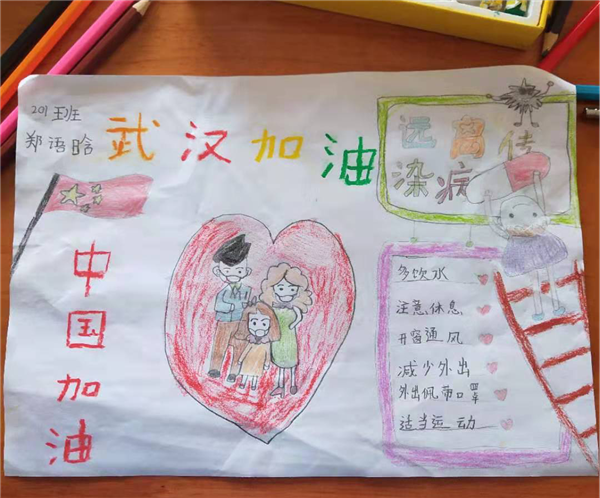 201班
郑语晗
武汉加油
远离传
染病
中国加油
多饮水
注意休息
开窗通风
减少外出
外出佩带口罩
适当运动